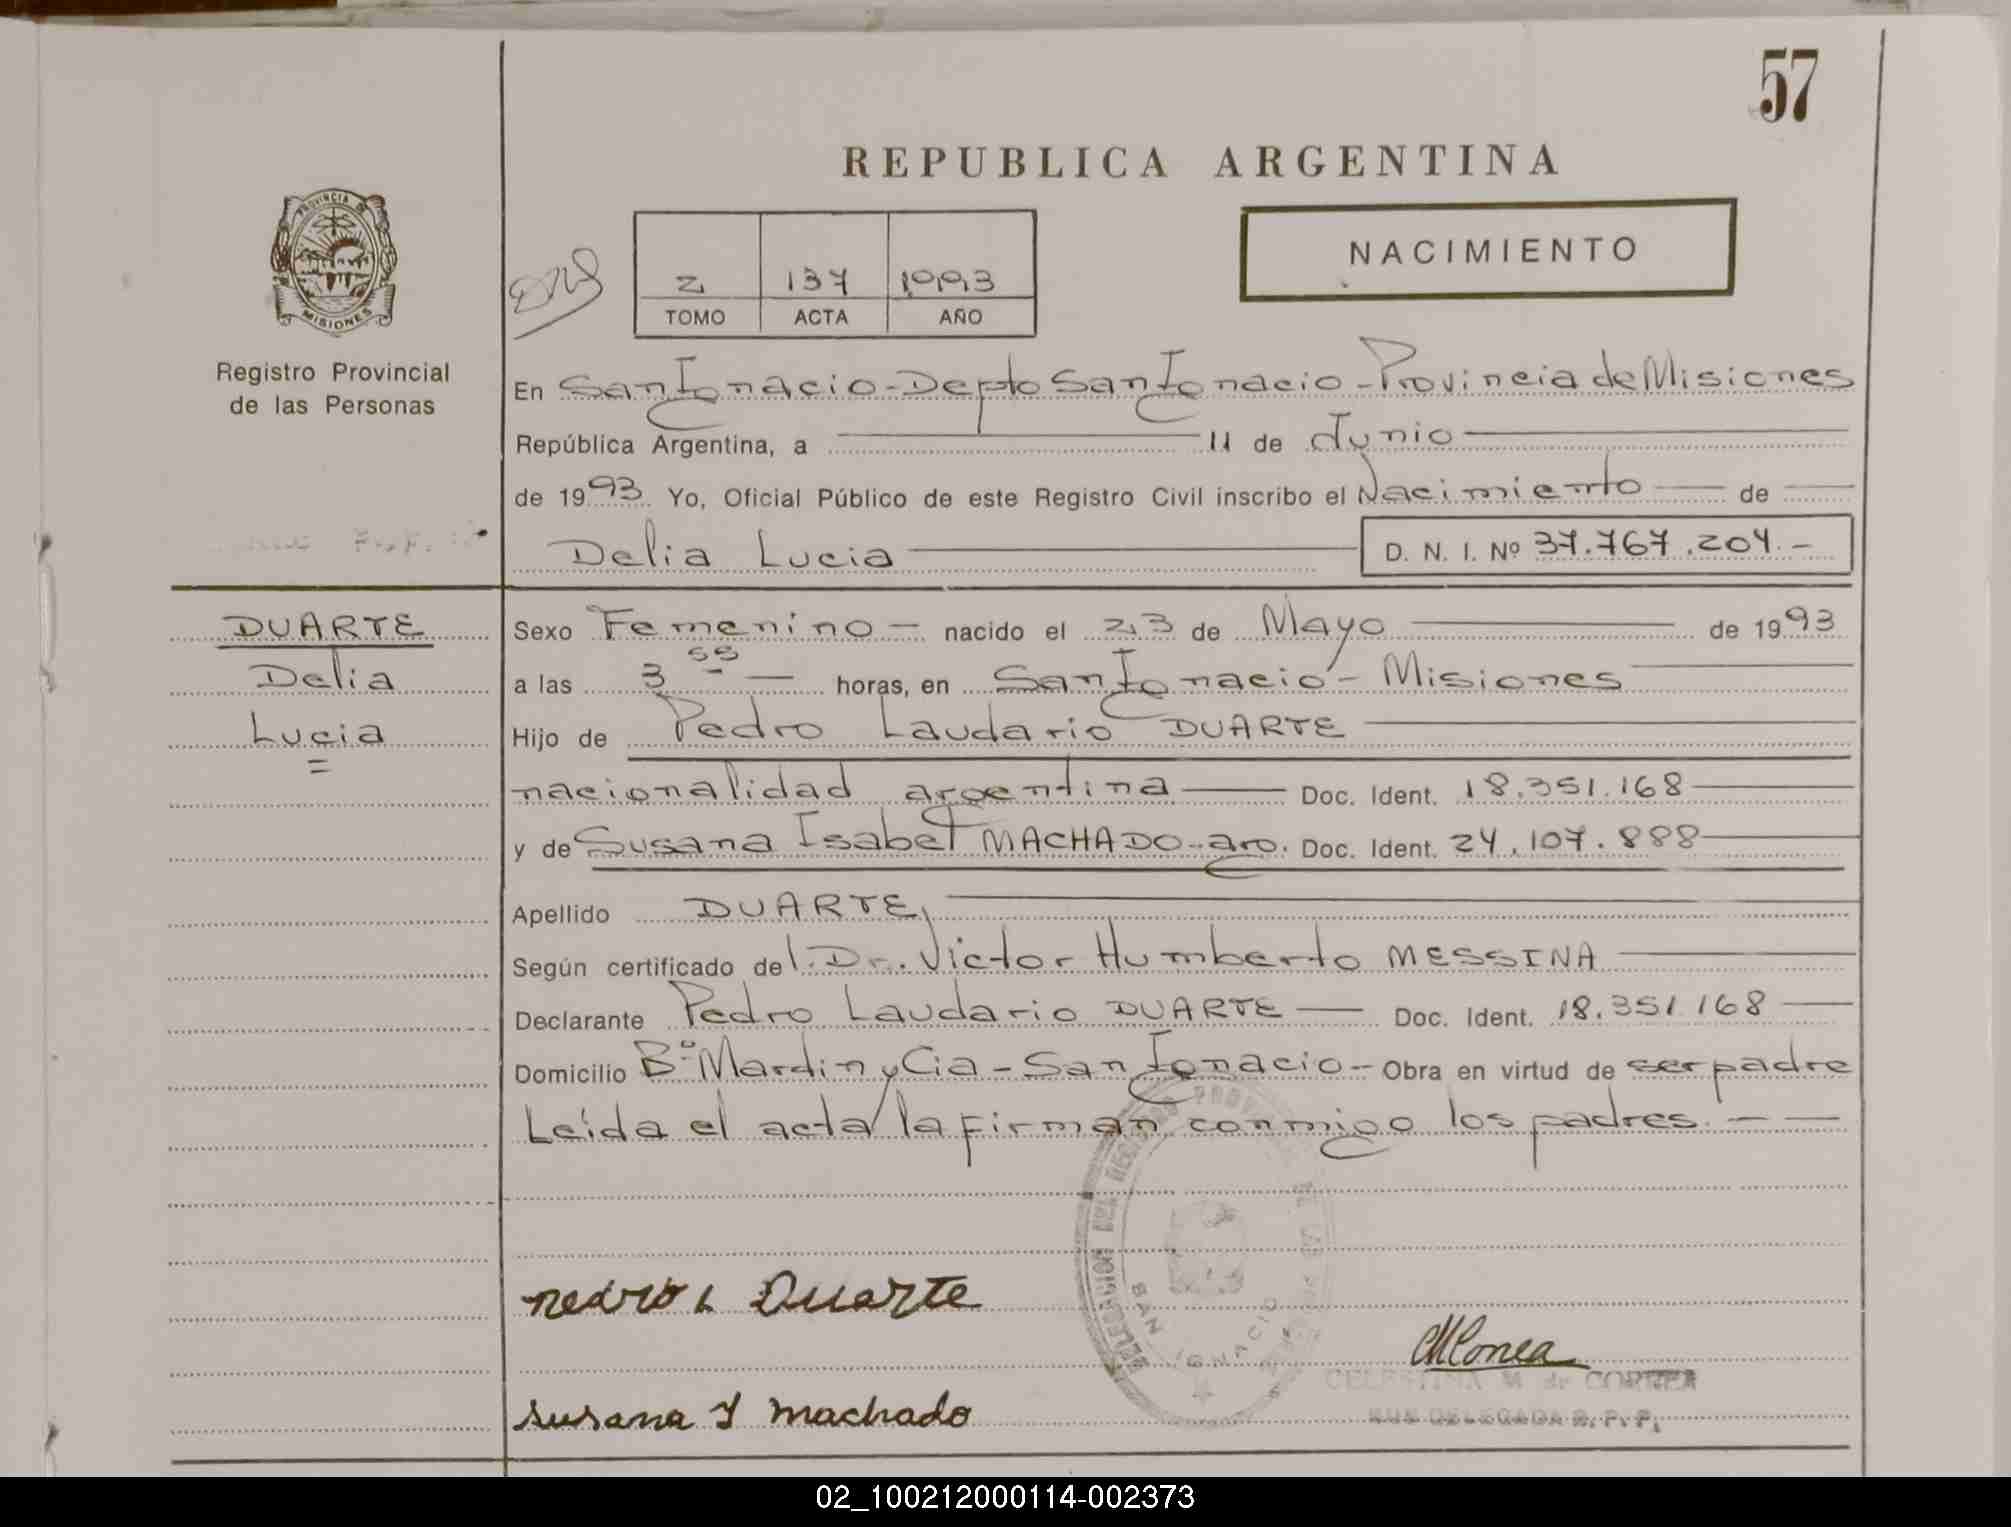 57
REPUBLICA ARGENTINA
PROVINCIA DE
MISIONES
Registro Provincial
de las Personas
2 137 1993
TOMO ACTA AÑO
NACIMIENTO
En San Ignacio - Depto San Ignacio - Provincia de Misiones
República Argentina, a 11 de Junio
de 1993 Yo, Oficial Público de este Registro Civil inscribo el Nacimiento de
Delia Lucia D. N. I. Nº 37.767.204.-
DUARTE
Delia
Lucia
=
Sexo Femenino - nacido el 23 de Mayo de 1993
a las 3 55 horas, en San Ignacio - Misiones
Hijo de Pedro Laudario DUARTE
nacionalidad argentina Doc. Ident. 18.351.168
y de Susana Isabel MACHADO - arg. Doc. Ident. 24.107.888
Apellido DUARTE,
Según certificado del Dr. Victor Humberto MESSINA
Declarante Pedro Laudario DUARTE Doc. Ident. 18.351.168
Domicilio Bº Mardin y Cia - San Ignacio - Obra en virtud de ser padre
Leída el acta la firman conmigo los padres. - -
DELEGACION DEL REGISTRO PROVINCIAL DE LAS PERSONAS
SAN IGNACIO
Pedro L Duarte
MCorrea
CELESTINA M de CORREA
SUB DELEGADA R. P. P.
Susana Y Machado
02_100212000114-002373